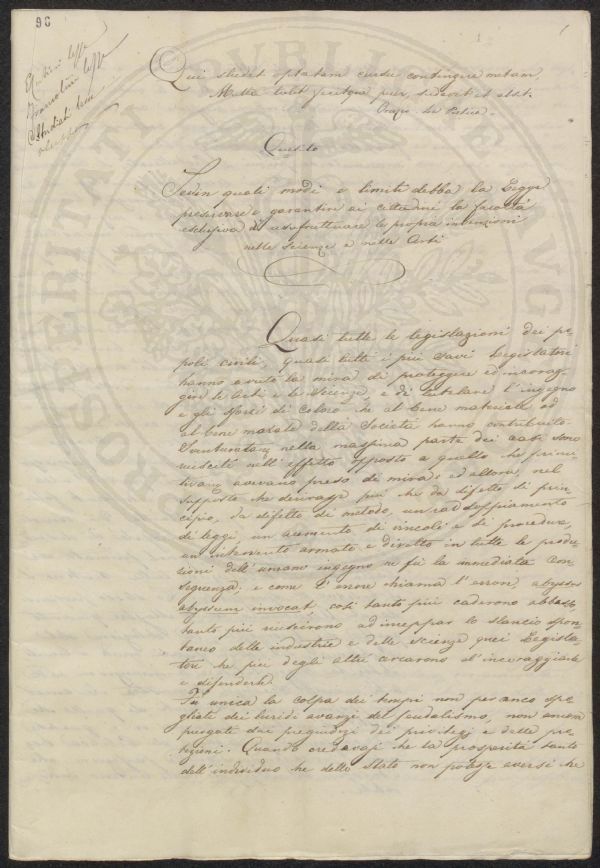 96
lesse
lesse
Qui studet optatam cursu contingere metam,
Multa tulit fecitque puer, sudavit et alsit.
Orazio La Poetica.
Quesito
Se ed in quali modi e limiti debba la Legge
preservare e garantire ai cittadini la facoltà
esclusiva di usufruttuare le proprie invenzioni
nelle Scienze e nelle Arti
Quasi tutte le legislazioni dei po-
poli civili, quasi tutti i più savi Legislatori
hanno avuto la mira di proteggere ed incorag-
gire le Arti e le Scienze, e di tutelare l'ingegno
e gli sforzi di coloro che al bene materiale ed
al bene morale della Società hanno contribuito.
nella massima parte dei casi sono
riusciti nell'effetto opposto a quello che primi-
tivam avevano preso di mira; ed allora, nel
supposto che derivasse più che da difetto di prin-
cipio, da difetto di metodo, un raddoppiamento
di leggi, un aumento di vincoli e di procedure,
un intervento armato e diretto in tutte le produ-
zioni dell'umano ingegno ne fu la immediata con-
seguenza; e come l'errore chiama l'errore, abyssus
abyssum invocat, così tanto più caderono abbasso,
tanto più riuscirono ad inceppar lo slancio spon-
taneo delle industrie e delle scienze quei Legisla-
tori che più degli altri cercarono d'incoraggiarle
e difenderle.
Fu unica la colpa dei tempi non per anco spo-
gliati dei luridi avanzi del feudalismo, non ancora
purgati dai pregiudizi dei privilegi e delle pro-
tezioni. Quando credevasi che la prosperità tanto
dell'individuo che dello Stato non potesse aversi che